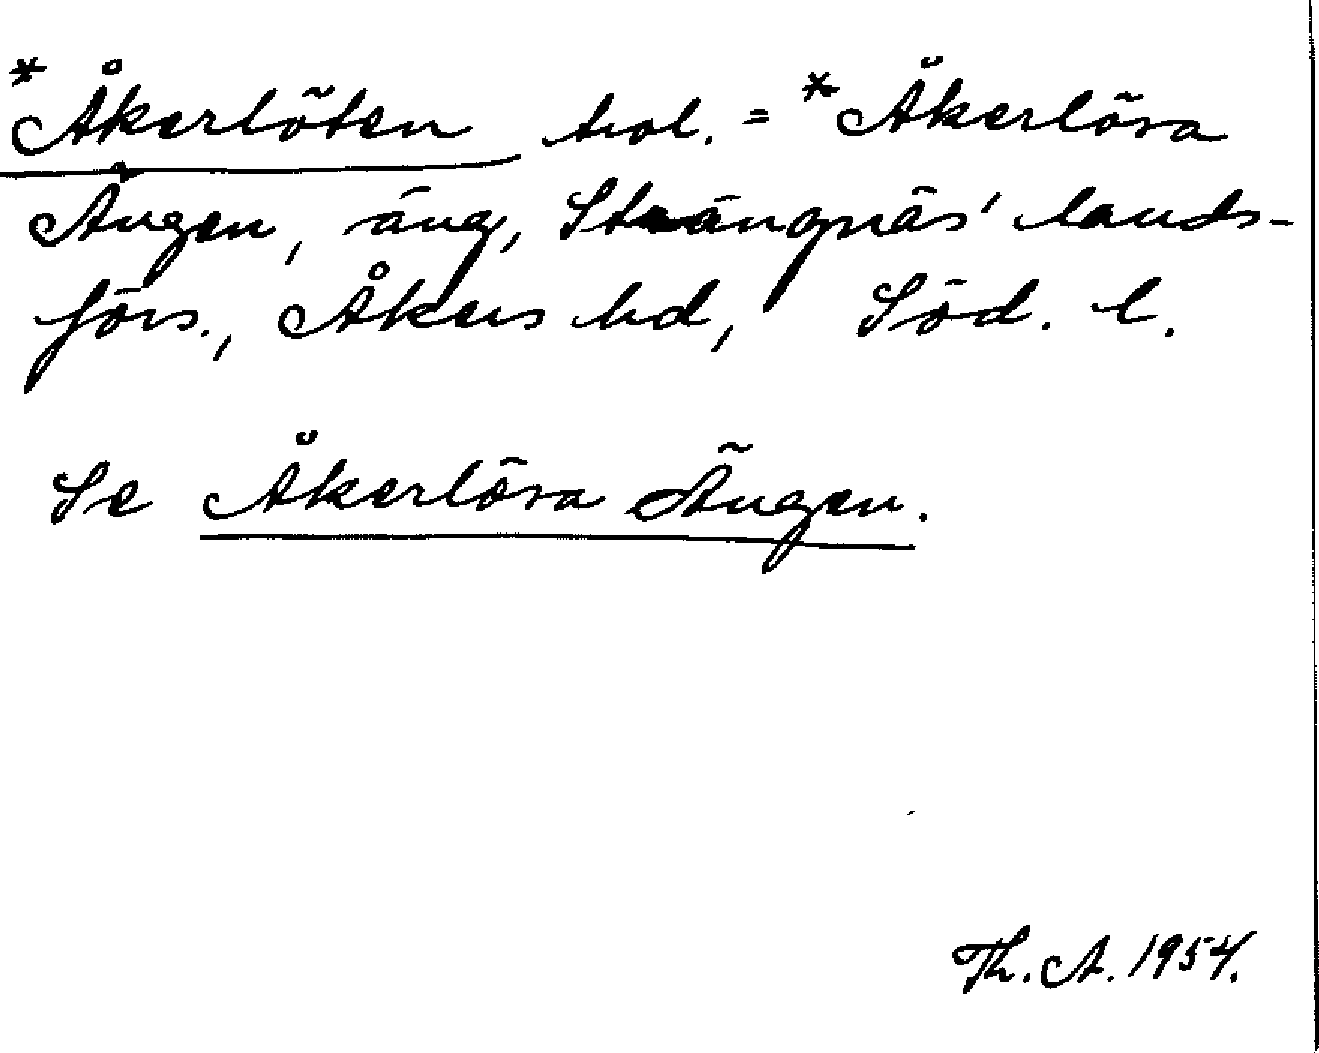 *Åkerlöten trol. = *Åkerlöra
Ängen, äng, Strängnäs' lands-
förs., Åkers hd, Söd. l.
Se Åkerlöra Ängen.
Th. A. 1954.